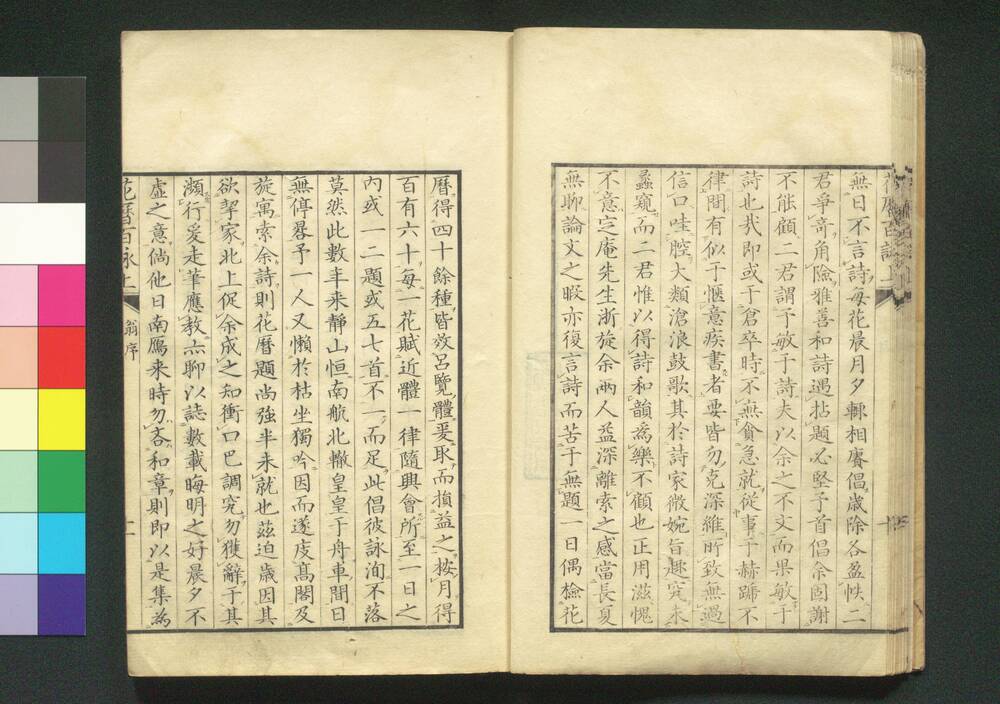 無日不言詩每花晨月夕輒相賡倡歲除各盈帙二
君爭奇角險雅善和詩遇拈題必堅予首倡余固謝
不能顧二君謂予敏于詩夫以余之不文而果敏于
詩也哉即或于倉卒時不無貪急就從事于赫蹏不
律間有似于愜意疾書者要皆勿克深維所致無過
信口哇腔大類滄浪鼓歌其於詩家微婉旨趣究未
蠡窺而二君惟以得詩和韻為樂不顧也正用滋愧
不意定庵先生浙旋余兩人益深離索之感當長夏
無聊論文之暇亦復言詩而苦于無題一日偶檢花
曆得四十餘種皆效呂覽體爰取而損益之按月得
百有六十每一花賦近體一律隨興會所至一日之
內或一二題或五七首不一而足此倡彼詠洵不落
莫然此數年來靜山恒南航北轍皇皇于舟車間日
無停晷予一人又懶於枯坐獨吟因而遂庋高閣及
旋寓索余詩則花曆題尚強半未就也茲迫歲因其
欲挈家北上促余成之知衝口巴調究勿獲辭于其
瀕行爰走筆應教亦聊以誌數載晦明之好晨夕不
虛之意倘他日南鴈來時勿吝和章則即以是集為
花曆百詠上
翁序
二